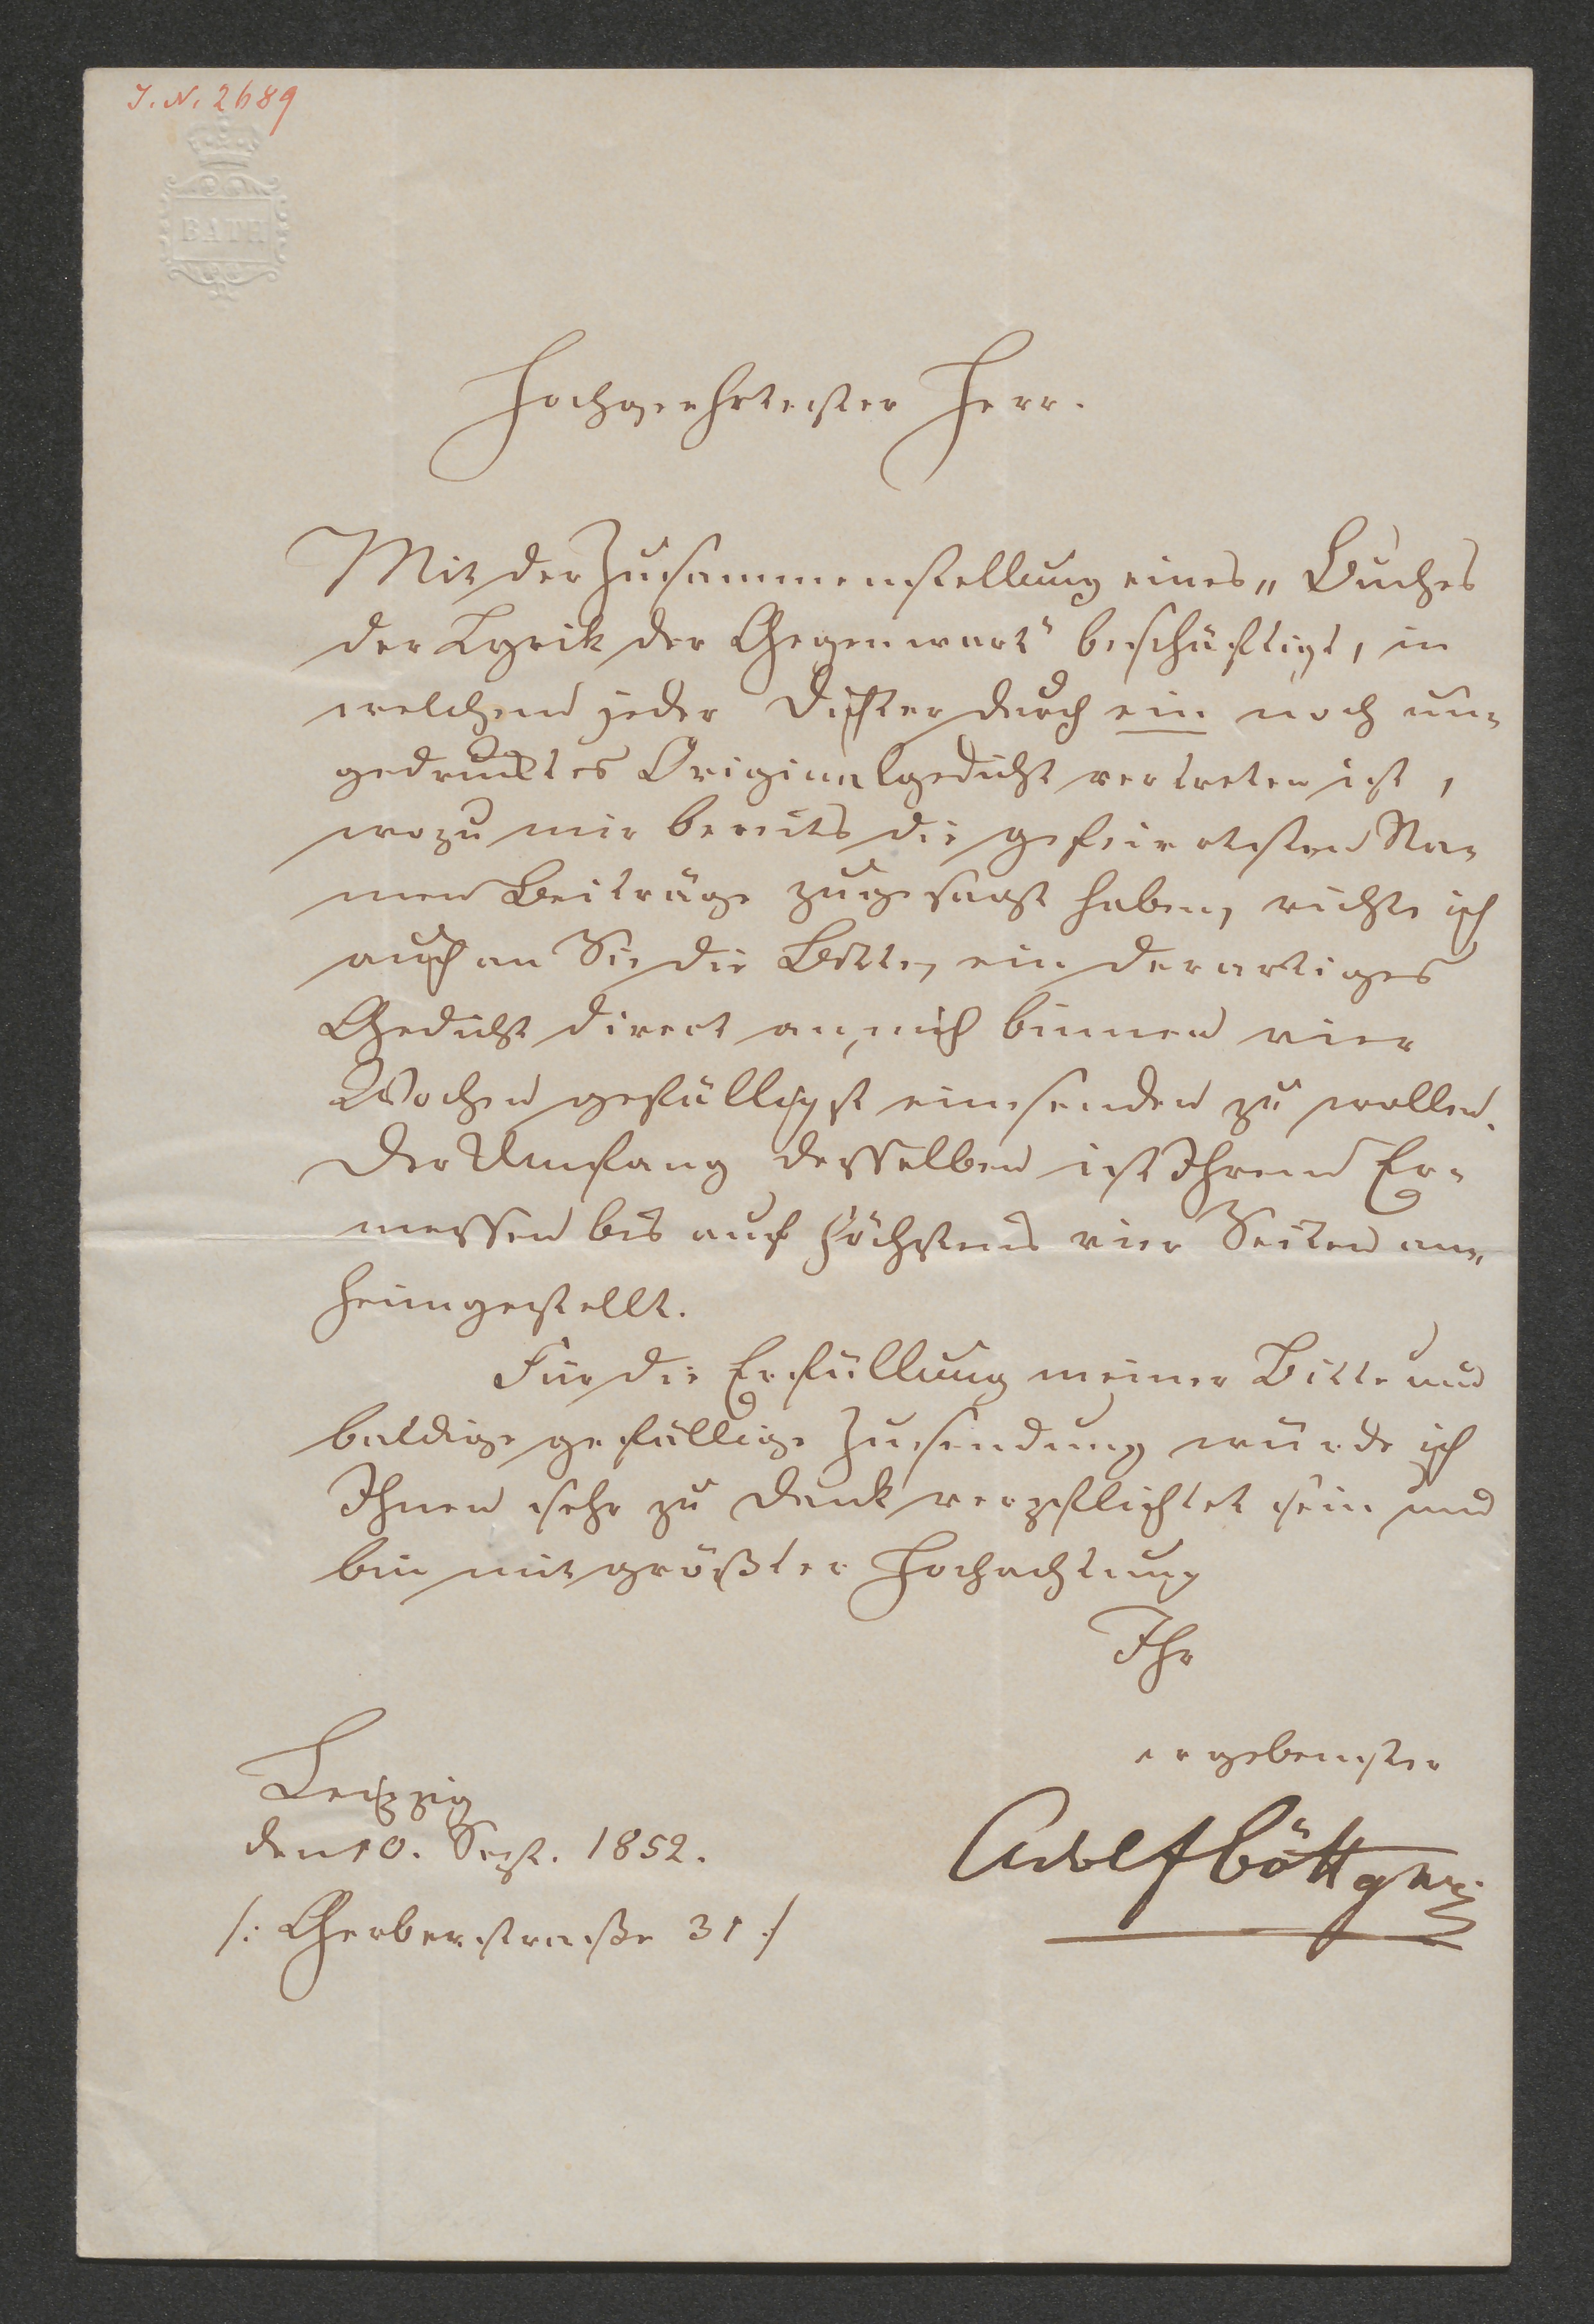 J. N. 2689
BATH
Hochgeehrtester Herr.
Mit der Zusammenstellung eines „Buches
der Lyrik der Gegenwart“ beschäftigt, in
welchem jeder Dichter durch ein noch un-
gedrucktes Originalgedicht vertreten ist,
wozu mir bereits die gefeiertsten Na-
men Beiträge zugesagt haben, richte ich
auch an Sie die Bitte, ein derartiges
Gedicht direct an mich binnen vier
Wochen gefälligst einsenden zu wollen.
Der Umfang desselben ist Ihrem Er-
messen bis auf höchstens vier Seiten an-
heimgestellt.
Für die Erfüllung meiner Bitte und
baldige gefällige Zusendung würde ich
Ihnen sehr zu Dank verpflichtet sein und
bin mit größter Hochachtung
Ihr
ergebenster
Adolf Böttger
Leipzig
den 10. Sept. 1852.
/: Gerberstraße 31 :/